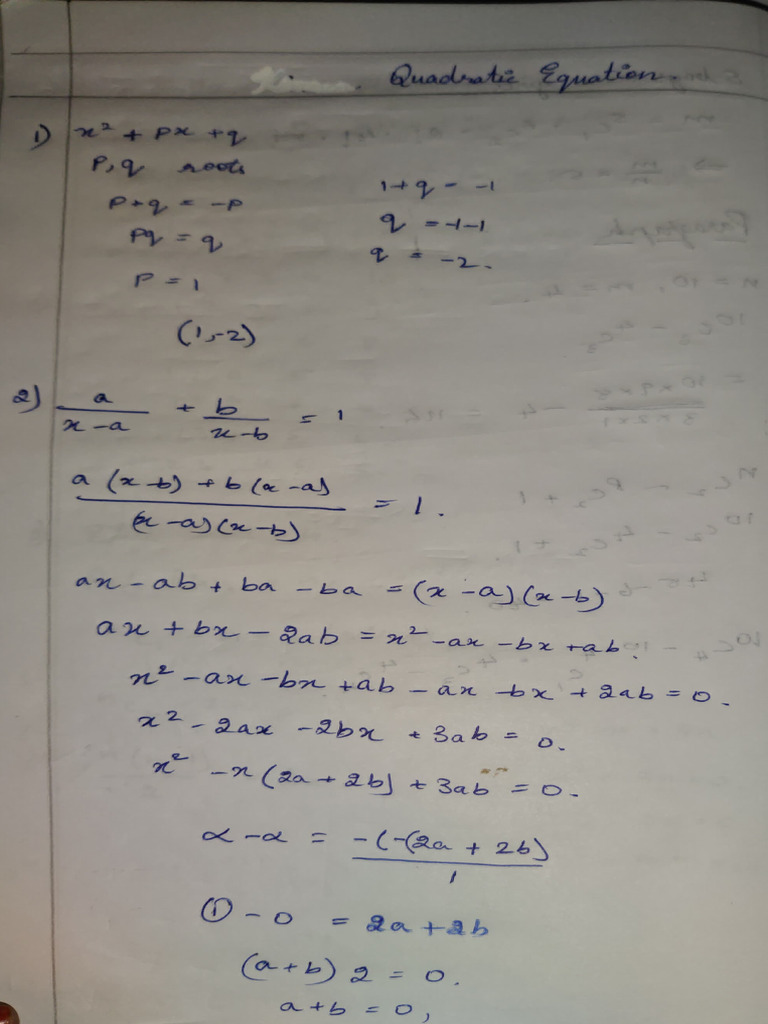 Quadratic Equation.
1) x² + px + q
P, q roots
p + q = -p
pq = q
P = 1
(1, -2)
1 + q = -1
q = -1-1
q = -2.
2) a/(x-a) + b/(x-b) = 1
(a(x-b) + b(x-a))/((x-a)(x-b)) = 1.
ax - ab + ba - ba = (x-a)(x-b)
ax + bx - 2ab = x² - ax - bx + ab.
x² - ax - bx + ab - ax - bx + 2ab = 0.
x² - 2ax - 2bx + 3ab = 0.
x² - x(2a + 2b) + 3ab = 0.
α - α = -(-(2a + 2b)/1
① - 0 = 2a + 2b
(a+b) 2 = 0.
a + b = 0,